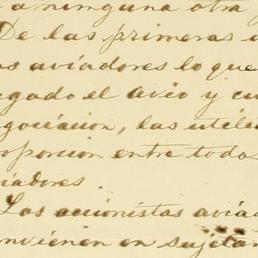 a ninguna otra
De las primeras u
os aviadores lo que
egado el avio y cu
gociacion, las utili
oporcion entre todo
iadores.
Los accionistas aviad
onvienen en sujetar